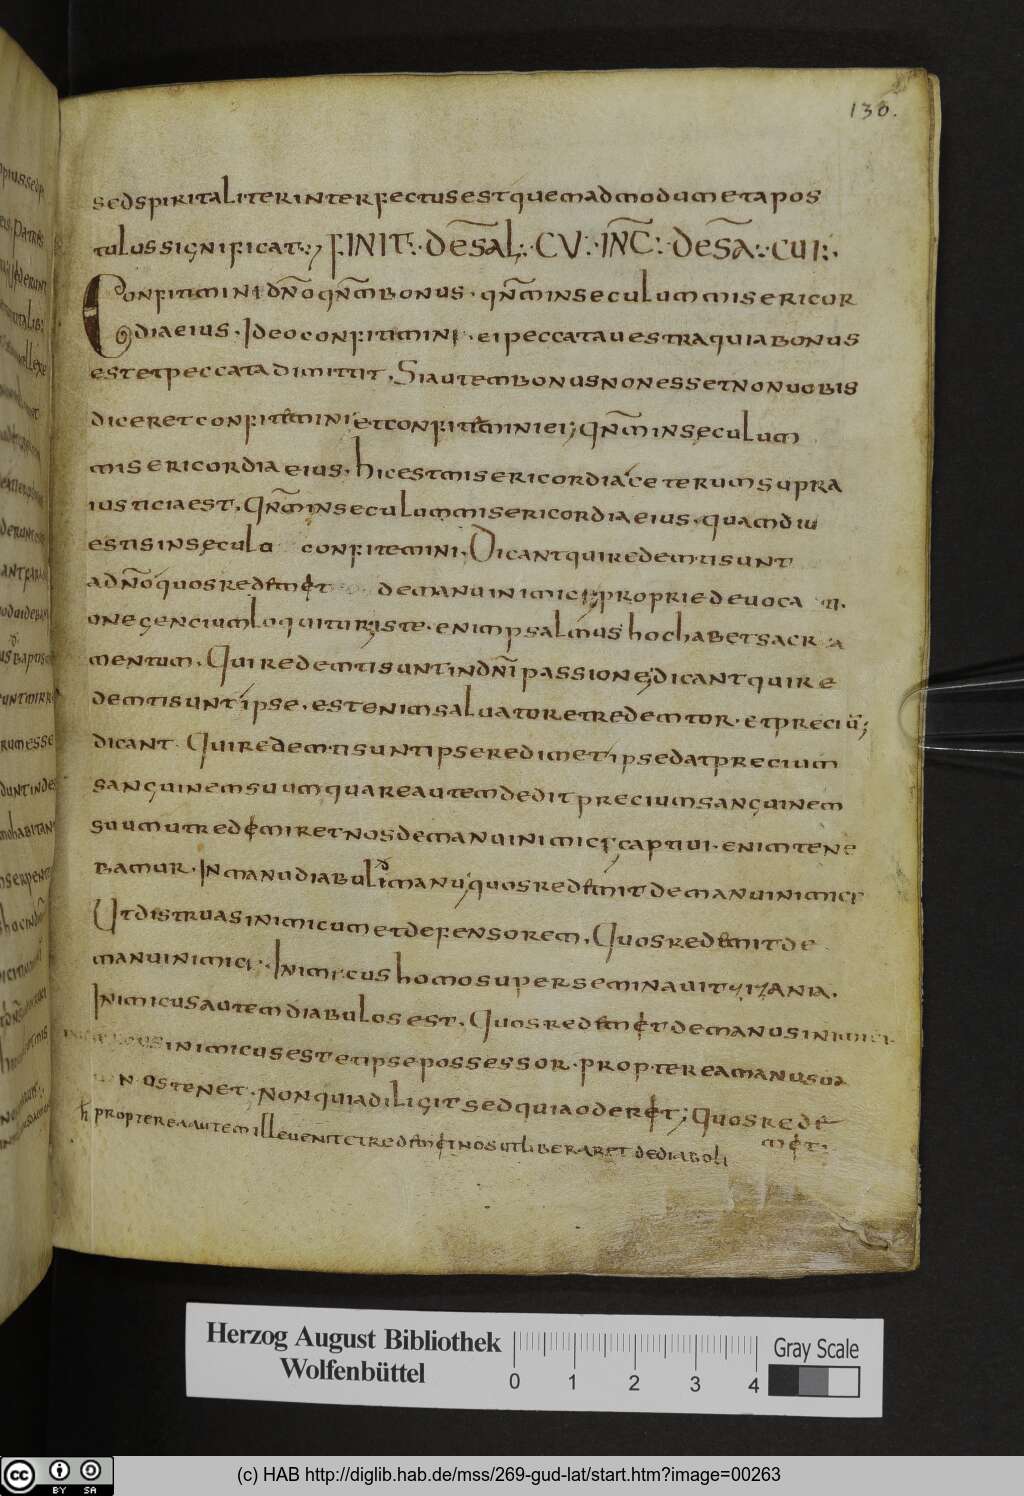 130.
sed spiritaliter interfectus est quemadmodum et apos
tulus significat:, FINIT:. De s̄al:. CV:. INC̄:. De s̄a:. CVI:.
Confitimini dn̄o qn̄m bonus. qn̄m in seculum misericor
dia eius. Ideo confitimini. ei peccata uestra quia bonus
est et peccata dimittit. Si autem bonus non esset non uobis
diceret confitimini et confitimini ei; qn̄m in seculum
misericordia eius. hic est misericordia ceterum supra
iusticia est. qn̄m in seculum misericordia eius. quamdiu
estis in seculo confitemini. Dicant qui redemti sunt
a dn̄o quos redemet de manu inimici; proprie de uoca ti
one gencium loquitur iste. enim psalmus hoc habet sacr a
mentum. Qui redemti sunt in dn̄i passione; dicant qui re
demti sunt ipse. est enim saluator et redemtor. et preciū;
dicant. Qui redemti sunt ipse redimet ipse dat precium
sanguinem suum quare autem dedit precium sanguinem
suum ut redemiret nos de manu inimici; captiui. enim tene
bamur. In manu diabuli manu; quos redemit de manu inimici
Ut distruas inimicum et defensorem. Quos redemit de
manu inimici:. Inimicus homo superseminauit zizania.
Inimicus autem diabulos est. Quos redemet de manus inimici
inimicus est et ipse possessor. propterea manus
nos tenet. Non quia diligit sed quia oderet; Quos rede
met.
h propterea autem ille uenit et redemet nos ut liberaret de diaboli
Herzog August Bibliothek
Wolfenbüttel
0 1 2 3 4
Gray Scale
cc BY SA
(c) HAB http://diglib.hab.de/mss/269-gud-lat/start.htm?image=00263